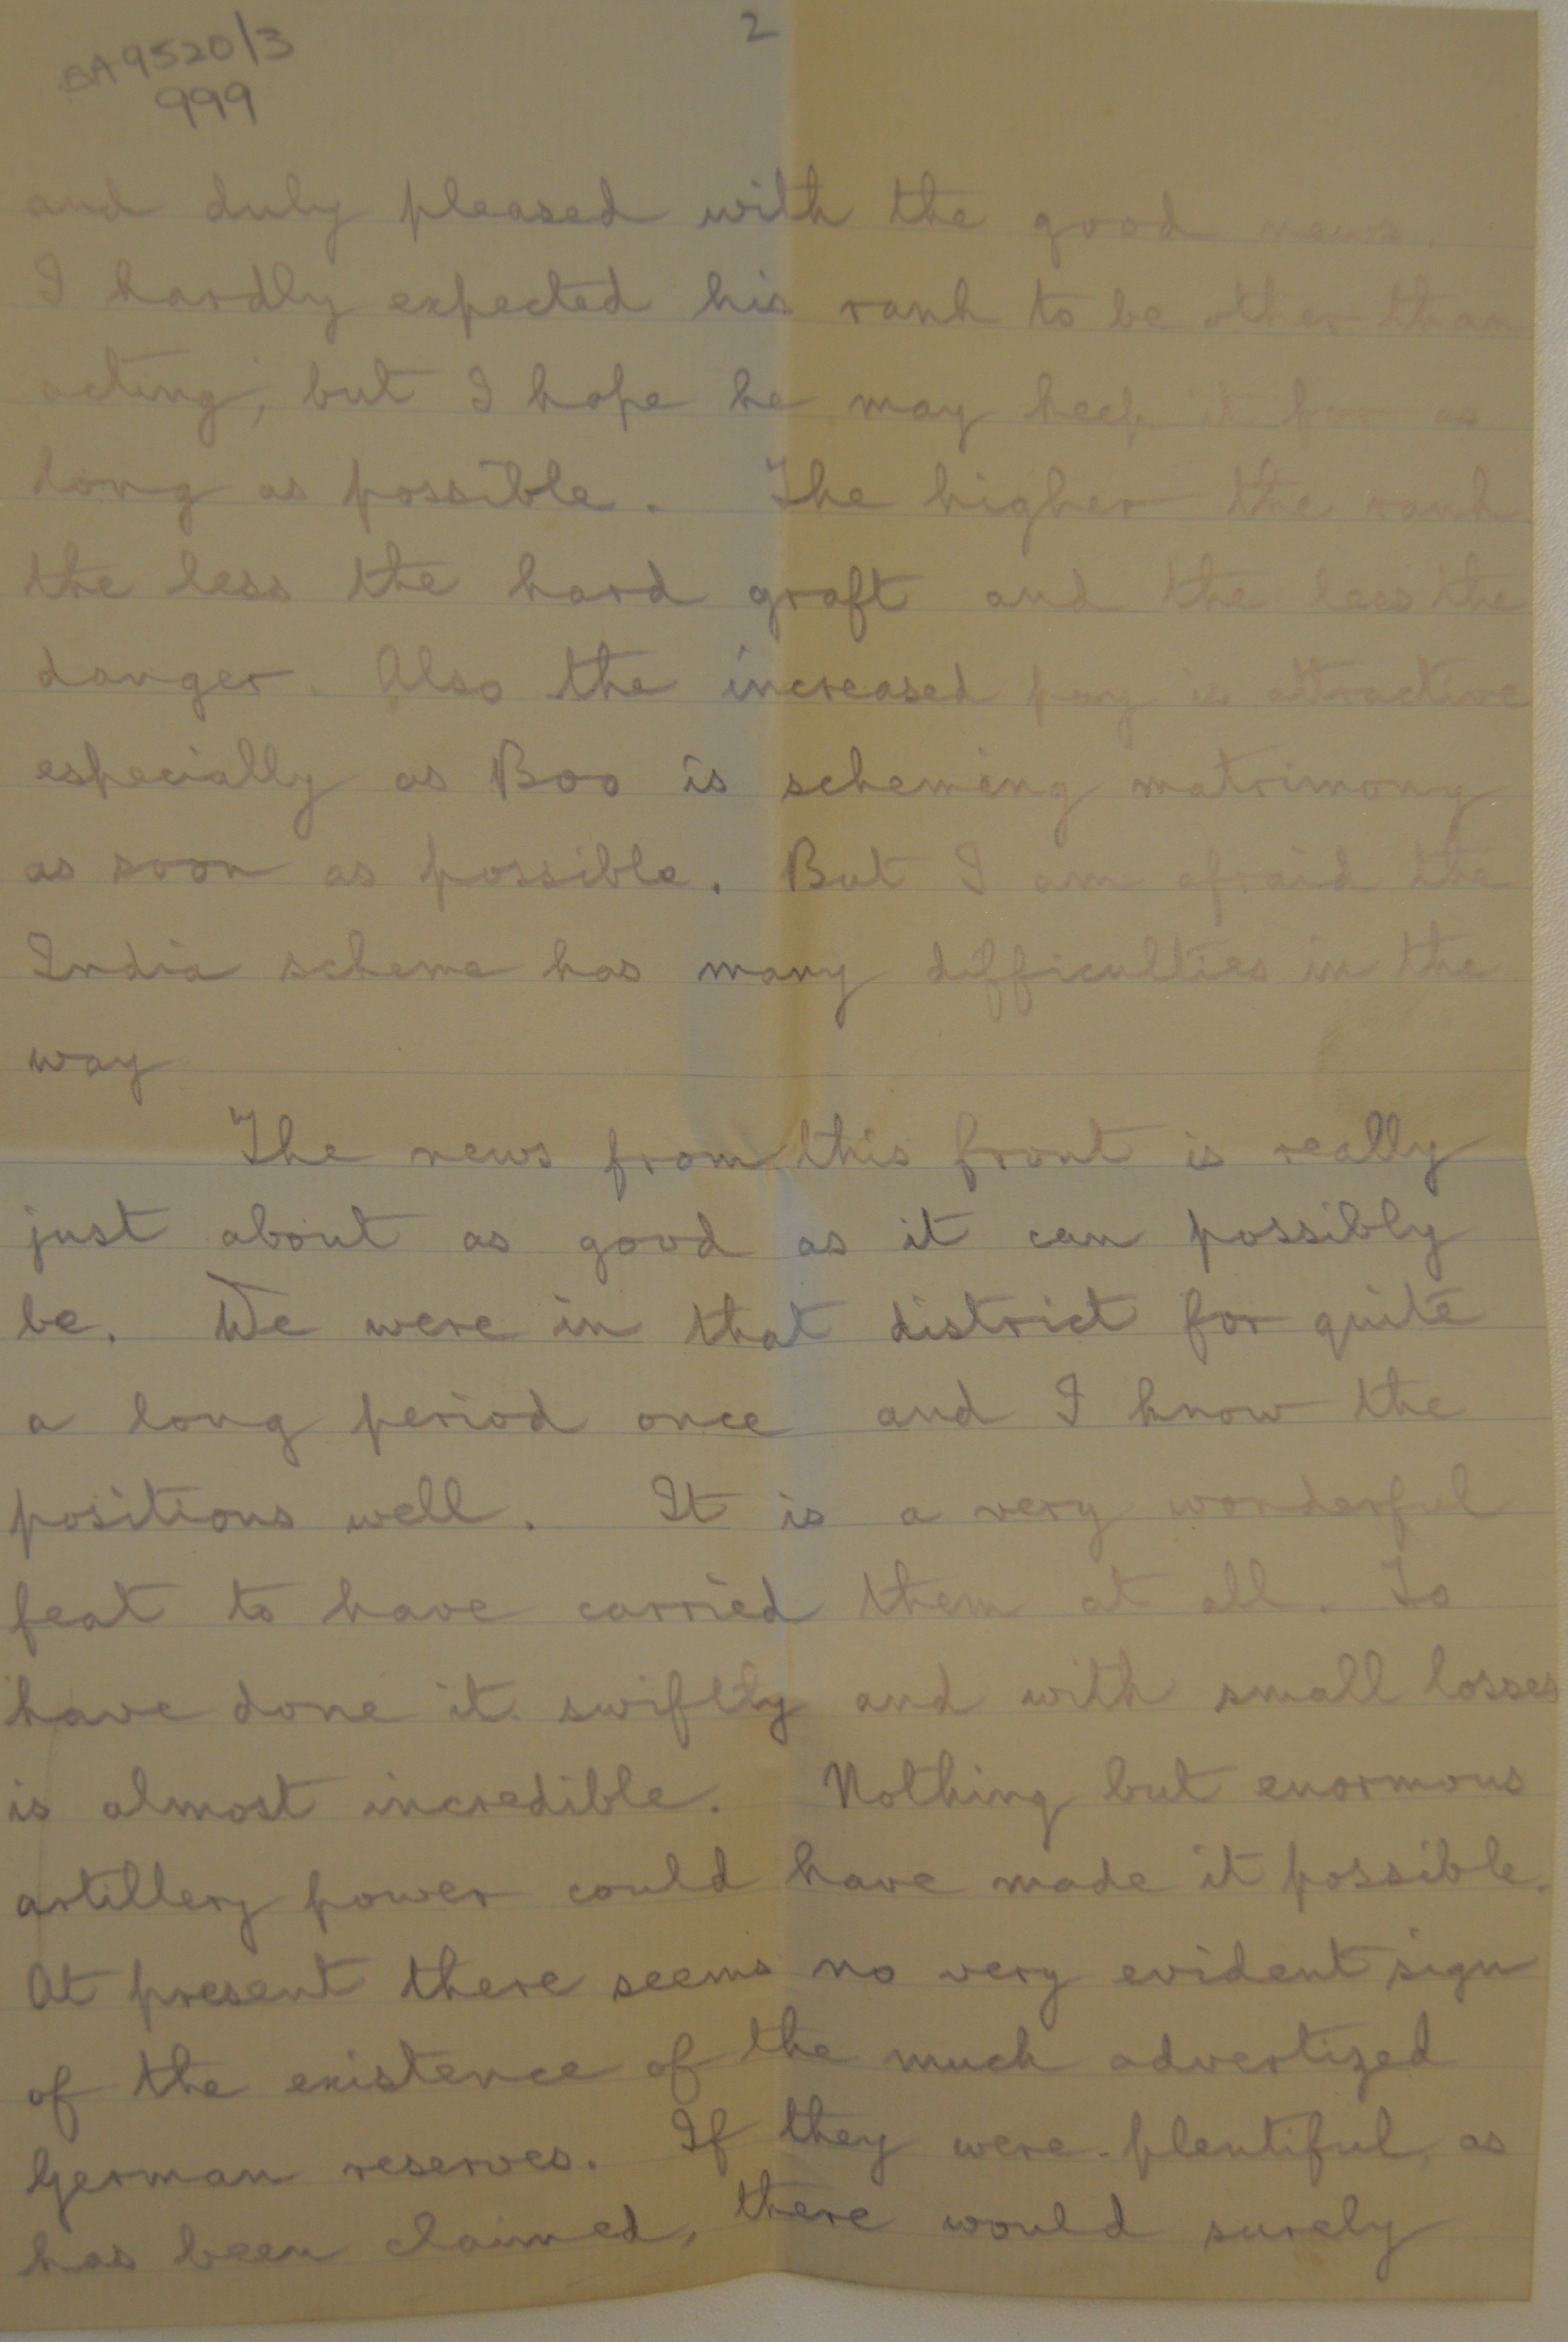 2
BA 9520/3
999
and duly pleased with the good news.
I hardly expected his rank to be other than
acting, but I hope he may keep it for as
long as possible. The higher the rank
the less the hard graft and the less the
danger. Also the increased pay is attractive
especially as Boo is scheming matrimony
as soon as possible. But I am afraid the
India scheme has many difficulties in the
way
The news from this front is really
just about as good as it can possibly
be. We were in that district for quite
a long period once and I know the
positions well. It is a very wonderful
feat to have carried them at all. To
have done it swiftly and with small losses
is almost incredible. Nothing but enormous
artillery power could have made it possible.
At present there seems no very evident sign
of the existence of the much advertized
German reserves. If they were plentiful, as
has been claimed, there would surely